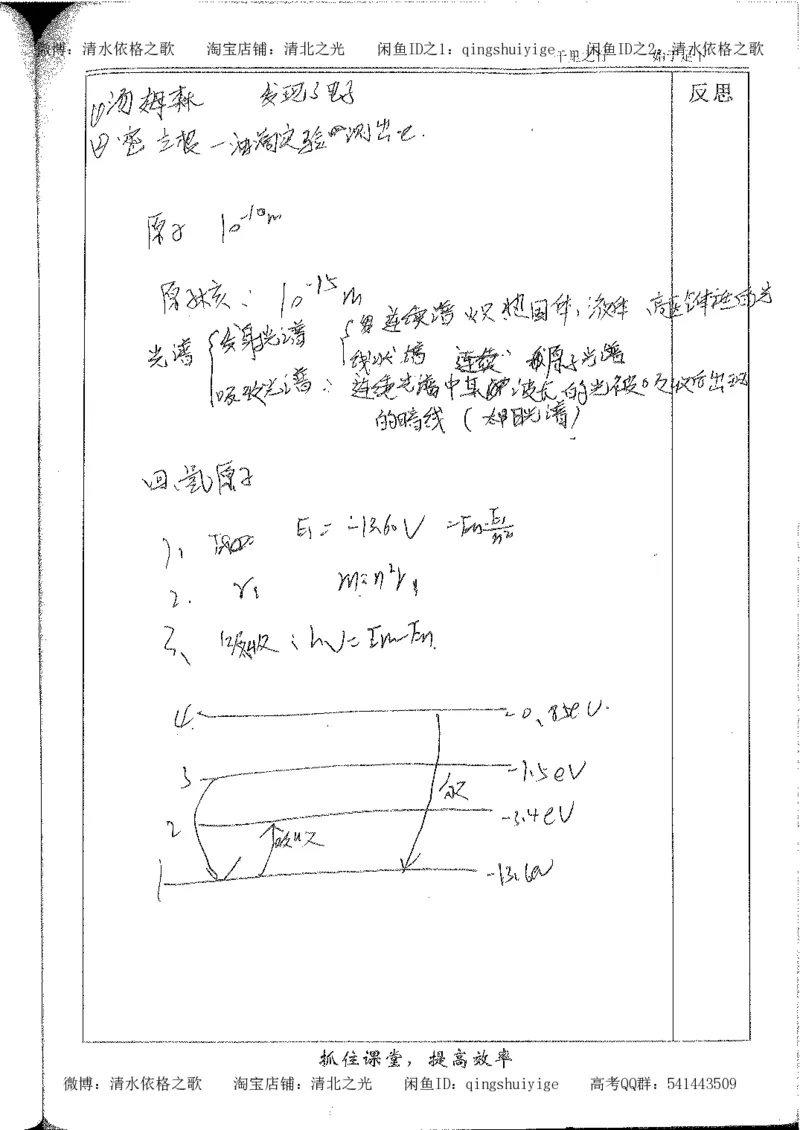 微博：清水依格之歌 淘宝店铺：清北之光 闲鱼ID之1：qingshuiyige 闲鱼ID之2：清水依格之歌
千里之行 始于足下
反思
(1)汤姆森 发现了电子
(2)密立根—油滴实验 测出e.
原子 10⁻¹⁰m
原子核：10⁻¹⁵m
光谱
发射光谱
连续谱 炽热固体，液体、高压气体
线状谱 连续 原子光谱
吸收光谱：连续光谱中某 波长的光被吸收后出现
的暗线（太阳光谱）
四、氢原子
1、 E₁=-13.6eV =En=E₁/n²
2. r₁ rn=n²r₁
3、吸收：hν=Em-En
4 -0.85eV.
3 -1.5eV
2 -3.4eV
吸收
1 -13.6eV
抓住课堂，提高效率
微博：清水依格之歌 淘宝店铺：清北之光 闲鱼ID：qingshuiyige 高考QQ群：541443509